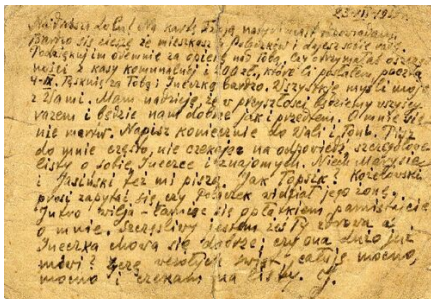 23-XII-19
Najdroższa Lolu! Na kartę Twoją natychmiast odpowiadam.
Bardzo się cieszę że mieszkasz u i dajesz sobie radę.
Podziękuj im odemnie za opiekę nad Tobą. Czy otrzymałaś oszczęd
ności z kasy komunalnej i 100 zł, które Ci posłałem pocztą
4-IX. Tęsknię za Tobą i Ineczką bardzo. Wszystkie myśli moje
z Wami. Mam nadzieję, że w przyszłości będziemy wszyscy
razem i będzie nam dobrze jak i przedtem. O mnie się
nie martw. Napisz koniecznie do Wali i Toni. Pisz
do mnie często, nie czekając na odpowiedź, szczegółowe
listy o sobie, Ineczce i znajomych. Niech Marysia
i Jasiński też mi piszą. Jak Topsik? Kozłowski
prosi zapytać się czy widział jego żonę.
Jutro wilja – łamiąc się opłatkiem pamiętajcie
o mnie. Szczęśliwy jestem żeś Ty zdrowa a
Ineczka chowa się dobrze; czy ona dużo już
mówi? Życzę wesołych świąt, całuję mocno,
mocno i czekam na listy.